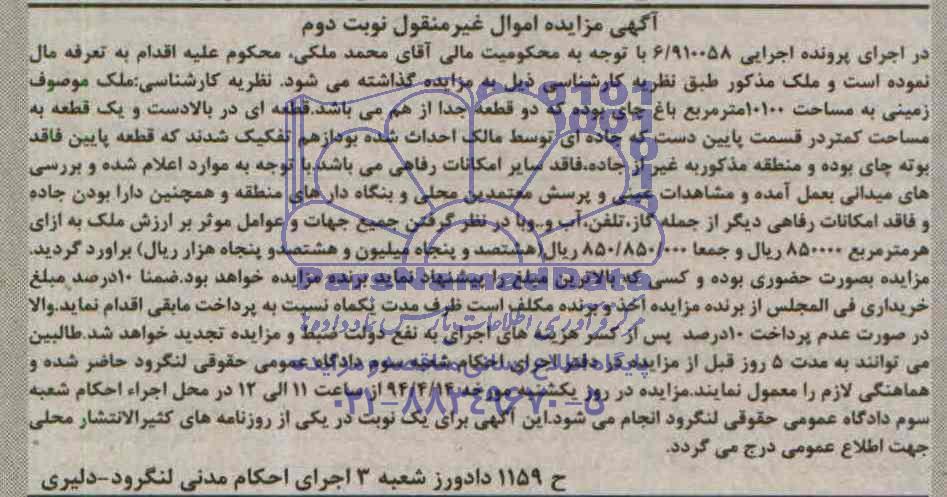 آگهی مزایده اموال غیرمنقول نوبت دوم
در اجرای پرونده اجرایی ۶/۹۱۰۰۵۸ با توجه به محکومیت مالی آقای محمد ملکی، محکوم علیه اقدام به تعرفه مال
نموده است و ملک مذکور طبق نظریه کارشناسی ذیل به مزایده گذاشته می شود. نظریه کارشناسی:ملک موصوف
زمینی به مساحت ۱۰۱۰۰مترمربع باغ چای بوده که دو قطعه جدا از هم می باشد.قطعه ای در بالادست و یک قطعه به
مساحت کمتردر قسمت پایین دست که جاده ای توسط مالک احداث شده بودازهم تفکیک شدند که قطعه پایین فاقد
بوته چای بوده و منطقه مذکوربه غیر از جاده،فاقد سایر امکانات رفاهی می باشد.با توجه به موارد اعلام شده و بررسی
های میدانی بعمل آمده و مشاهدات عینی و پرسش معتمدین محلی و بنگاه دار های منطقه و همچنین دارا بودن جاده
و فاقد امکانات رفاهی دیگر از جمله گاز،تلفن،آب و..وبا در نظر گرفتن جمیع جهات و عوامل موثر بر ارزش ملک به ازای
هرمترمربع ۸۵۰۰۰۰ ریال و جمعا ۸۵۰/۸۵۰/۰۰۰ ریال (هشتصد و پنجاه میلیون و هشتصدو پنجاه هزار ریال) براورد گردید.
مزایده بصورت حضوری بوده و کسی که بالاترین مبلغ را پیشنهاد نماید برنده مزایده خواهد بود.ضمنا ۱۰درصد مبلغ
خریداری فی المجلس از برنده مزایده اخذ و برنده مکلف است ظرف مدت یکماه نسبت به پرداخت مابقی اقدام نماید.والا
در صورت عدم پرداخت ۱۰درصد پس از کسر هزینه های اجرای به نفع دولت ضبط و مزایده تجدید خواهد شد.طالبین
می توانند به مدت ۵ روز قبل از مزایده در دفتر اجرای احکام شعبه سوم دادگاه عمومی حقوقی لنگرود حاضر شده و
هماهنگی لازم را معمول نمایند.مزایده در روز یکشنبه مورخه ۹۴/۴/۱۴ از ساعت ۱۱ الی ۱۲ در محل اجراء احکام شعبه
سوم دادگاه عمومی حقوقی لنگرود انجام می شود.این آگهی برای یک نوبت در یکی از روزنامه های کثیرالانتشار محلی
جهت اطلاع عمومی درج می گردد.
ح ۱۱۵۹ دادورز شعبه ۳ اجرای احکام مدنی لنگرود-دلیری
ParsNamadData
مرکز فرآوری اطلاعات پارس نماد داده ها
۰۲۱-۸۸۳۴۹۶۷۰-۵